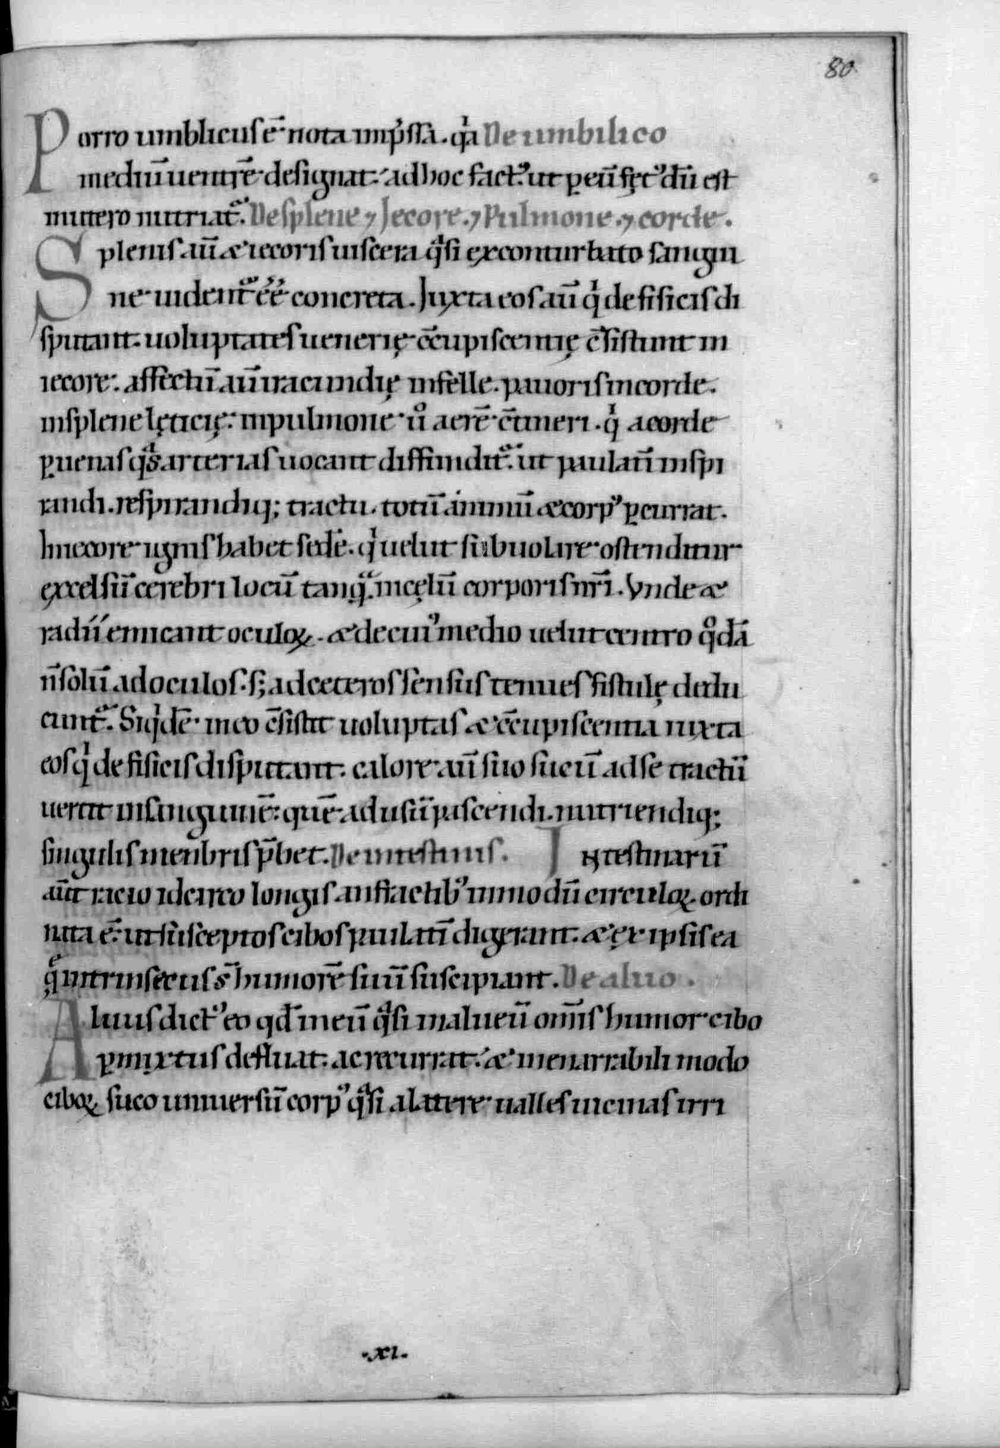 80
Porro umblicus ē nota imp̄ssa. qͣ De umbilico
mediū uentrē designat. ad hoc fact᷒ ut ꝑ eū fęt᷒ dū est
in utero nutriat᷑. De splene ⁊ Jecore. ⁊ Pulmone. ⁊ corde.
Splenis aū æ iecoris uiscera qͣsi ex conturbato sangui
ne uident᷑ eē concreta. Juxta eos aū qͥ de fisicis di
sputant. uoluptates uenerię c̄cupiscentię c̄sistunt in
iecore. affectū aū iracundię in felle. pauoris in corde.
in splene lęticię. in pulmone uͦ aerē c̄tineri. qͥ a corde
ꝑ uenas qͣs arterias uocant diffundit᷑. ut paulatī inspi
randi. respirandiq; tractu. totū animū æ corp᷒ ꝑcurrat.
In iecore ignis habet sedē. qͥ uelut subuolare ostenditur
excelsū cerebri locū tanqͣ in cęlū corporis nr̄i. Vnde æ
radii emicant oculoꝝ. æ de cui᷒ medio uelut centro qͦdā
n̄ solū ad oculos. s; ad ceteros sensus tenues fistulę dedu
cunt᷑. Siqͥdē in eo c̄sistit uoluptas æ c̄cupiscentia iuxta
eos qͥ de fisicis disputant. calore aū suo sucū ad se tractū
uertit in sanguinē. quē ad usū pascendi. nutriendiq;
singulis menbris p̄bet. De intestinis. Intestinarū
aūt racio idcirco longis anfractib᷒ in modū circuloꝝ ordi
nata ē. ut susceptos cibos paulatī digerant. æ ex ipsis ea
qͣ intrinsecus s̄ humorē suū suscipiant. De aluo.
Aluus dict᷒ eo qd̄ in eū qͣsi in alueū omīs humor cibo
ꝑmixtus defluat. ac recurrat. æ inenarrabili modo
ciboꝝ suco uniuersū corp᷒ qͣsi a latere ualles uicinas irri
.xi.